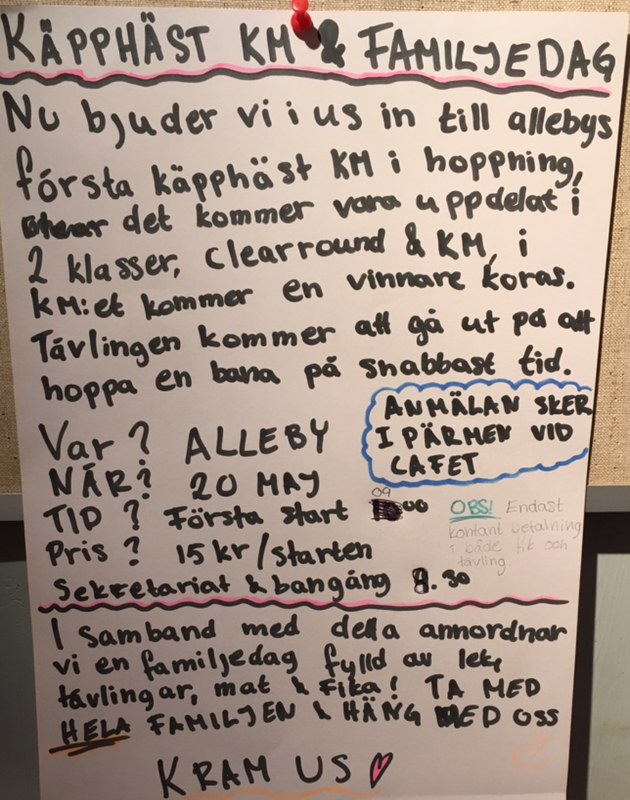 KÄPPHÄST KM & FAMILJEDAG
Nu bjuder vi i us in till allebys
första käpphäst KM i hoppning,
det kommer vara uppdelat i
2 klasser, clearround & KM, i
KM:et kommer en vinnare koras.
Tävlingen kommer att gå ut på att
hoppa en bana på snabbast tid.
ANMÄLAN SKER
I PÄRMEN VID
CAFET
Var? ALLEBY
NÄR? 20 MAY
TID? Första start 09 00
Pris? 15 kr/starten
Sekretariat & bangång 8.30
OBS! Endast
kontant betalning
i både fik och
tävling
I samband med detta annordnar
vi en familjedag fylld av lek,
tävlingar, mat & Fika! TA MED
HELA FAMILJEN & HÄNG MED OSS
KRAM US